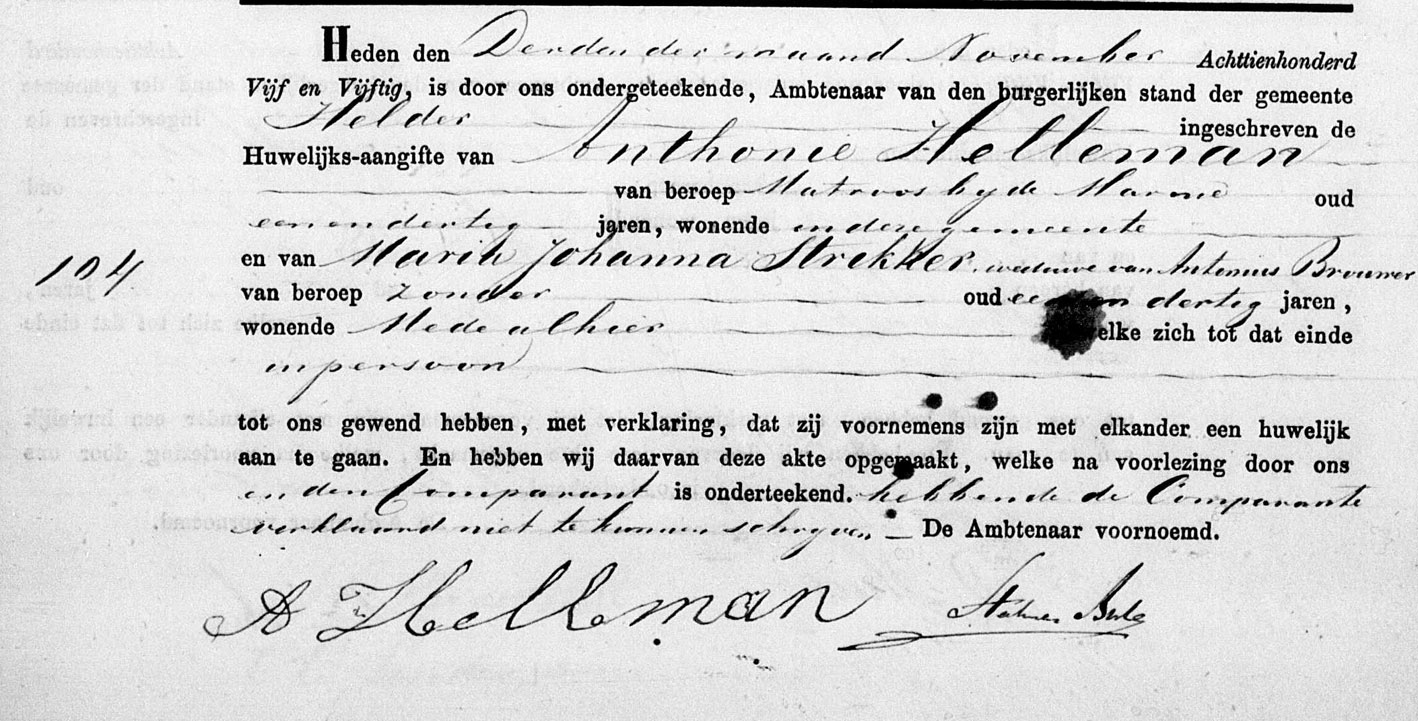 Heden den Derden der maand November Achttienhonderd
Vijf en Vijftig, is door ons ondergeteekende, Ambtenaar van den burgerlijken stand der gemeente
Helder ingeschreven de
Huwelijks-aangifte van Anthonie Helleman
van beroep Matroos by de Marine oud
eenendertig jaren, wonende in deze gemeente
en van Maria Johanna Strekker, weduwe van Antonius Brouwer
104
van beroep zonder oud een en dertig jaren,
wonende Mede alhier welke zich tot dat einde
in persoon
tot ons gewend hebben, met verklaring, dat zij voornemens zijn met elkander een huwelijk
aan te gaan. En hebben wij daarvan deze akte opgemaakt, welke na voorlezing door ons
en den Comparant is onderteekend. hebbende de Comparante
verklaard niet te kunnen schryven. De Ambtenaar voornoemd.
A Helleman